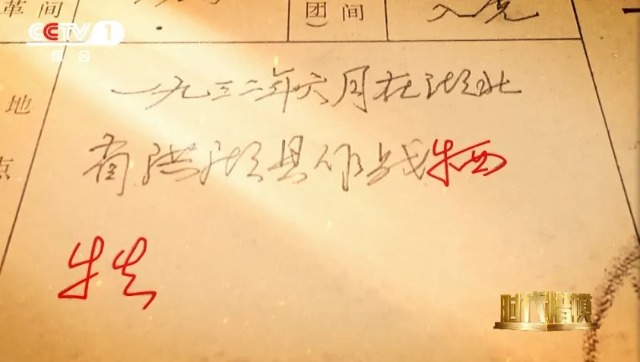 CCTV 1
综合
革间
团间
入党
一九三二年六月在湖北
地
省洪湖县作战牺
点
牲
时代楷模